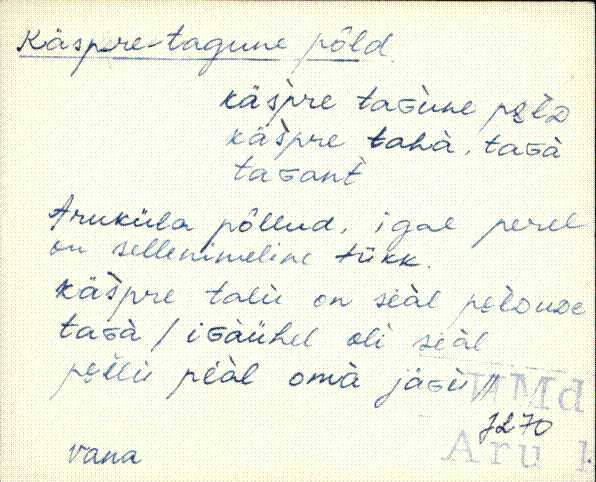 Käspre-tagune põld.
käs̀pre taɢùne pɛ̮lᴅ
käs̀pre tahà, taɢà
taɢant̀
Aruküla põllud, igal perel
on sellenimeline tükk.
käs̀pre talù on siàl pɛ̮lᴅuᴅe
taɢà / iɢàühel oli siàl
pɛ̮llù piàl omà jäɢù //
J270
vana
WMd
Aru k